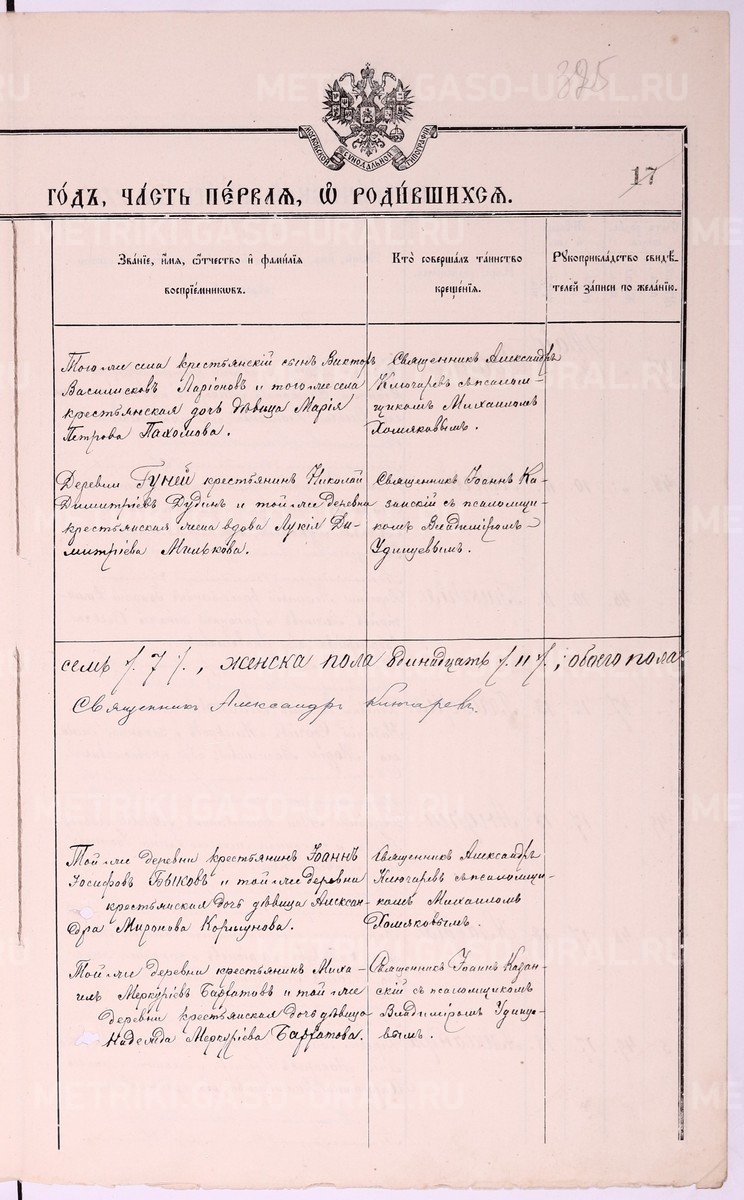 325
METRIKI.GASO-URAL.RU
МОСКОВСКОЙ СѴНОДАЛЬНОЙ ТИПОГРАФІИ
17
ГО́ДЪ, ЧА́СТЬ ПЕ́РВАЯ, Ѡ҆ РОДИ́ВШИХСЯ.
Зва́нїе, и҆́мя, ѻ҆́тчество и҆ фами́лїя
воспрїе́мникѡвъ.
Кто̀ соверша́лъ та́инство
креще́нїя.
Рꙋкоприкла́дство свидѣ́-
телей за́писи по жела́нїю.
Того же села крестьянскій сынъ Викторъ
Василисковъ Ларіоновъ и того же села
крестьянская дочь дѣвица Марія
Петрова Пахомова.
Священникъ Александръ
Ключаревъ съ псалом-
щикомъ Михаиломъ
Хомяковымъ.
Деревни Гуней крестьянинъ Николай
Димитріевъ Дудинъ и той же деревни
крестьянская жена вдова Лукія Ди-
митріева Милькова.
Священникъ Іоаннъ Ка-
занскій съ псаломщи-
комъ Владиміромъ
Удинцевымъ.
семь /.7/., женска пола одинадцать /.11/.; обоего пола
Священникъ Александръ Ключаревъ.
Той же деревни крестьянинъ Іоаннъ
Іосифовъ Быковъ и той же деревни
крестьянская дочь дѣвица Алексан-
дра Миронова Коршунова.
Священникъ Александръ
Ключаревъ съ псаломщи-
комъ Михаиломъ
Хомяковымъ.
Той же деревни крестьянинъ Миха-
илъ Меркуріевъ и той же
деревни крестьянская дочь дѣвица
Надежда Меркуріева
Священникъ Іоаннъ Казан-
скій съ псаломщикомъ
Владиміромъ Удинце-
вымъ.